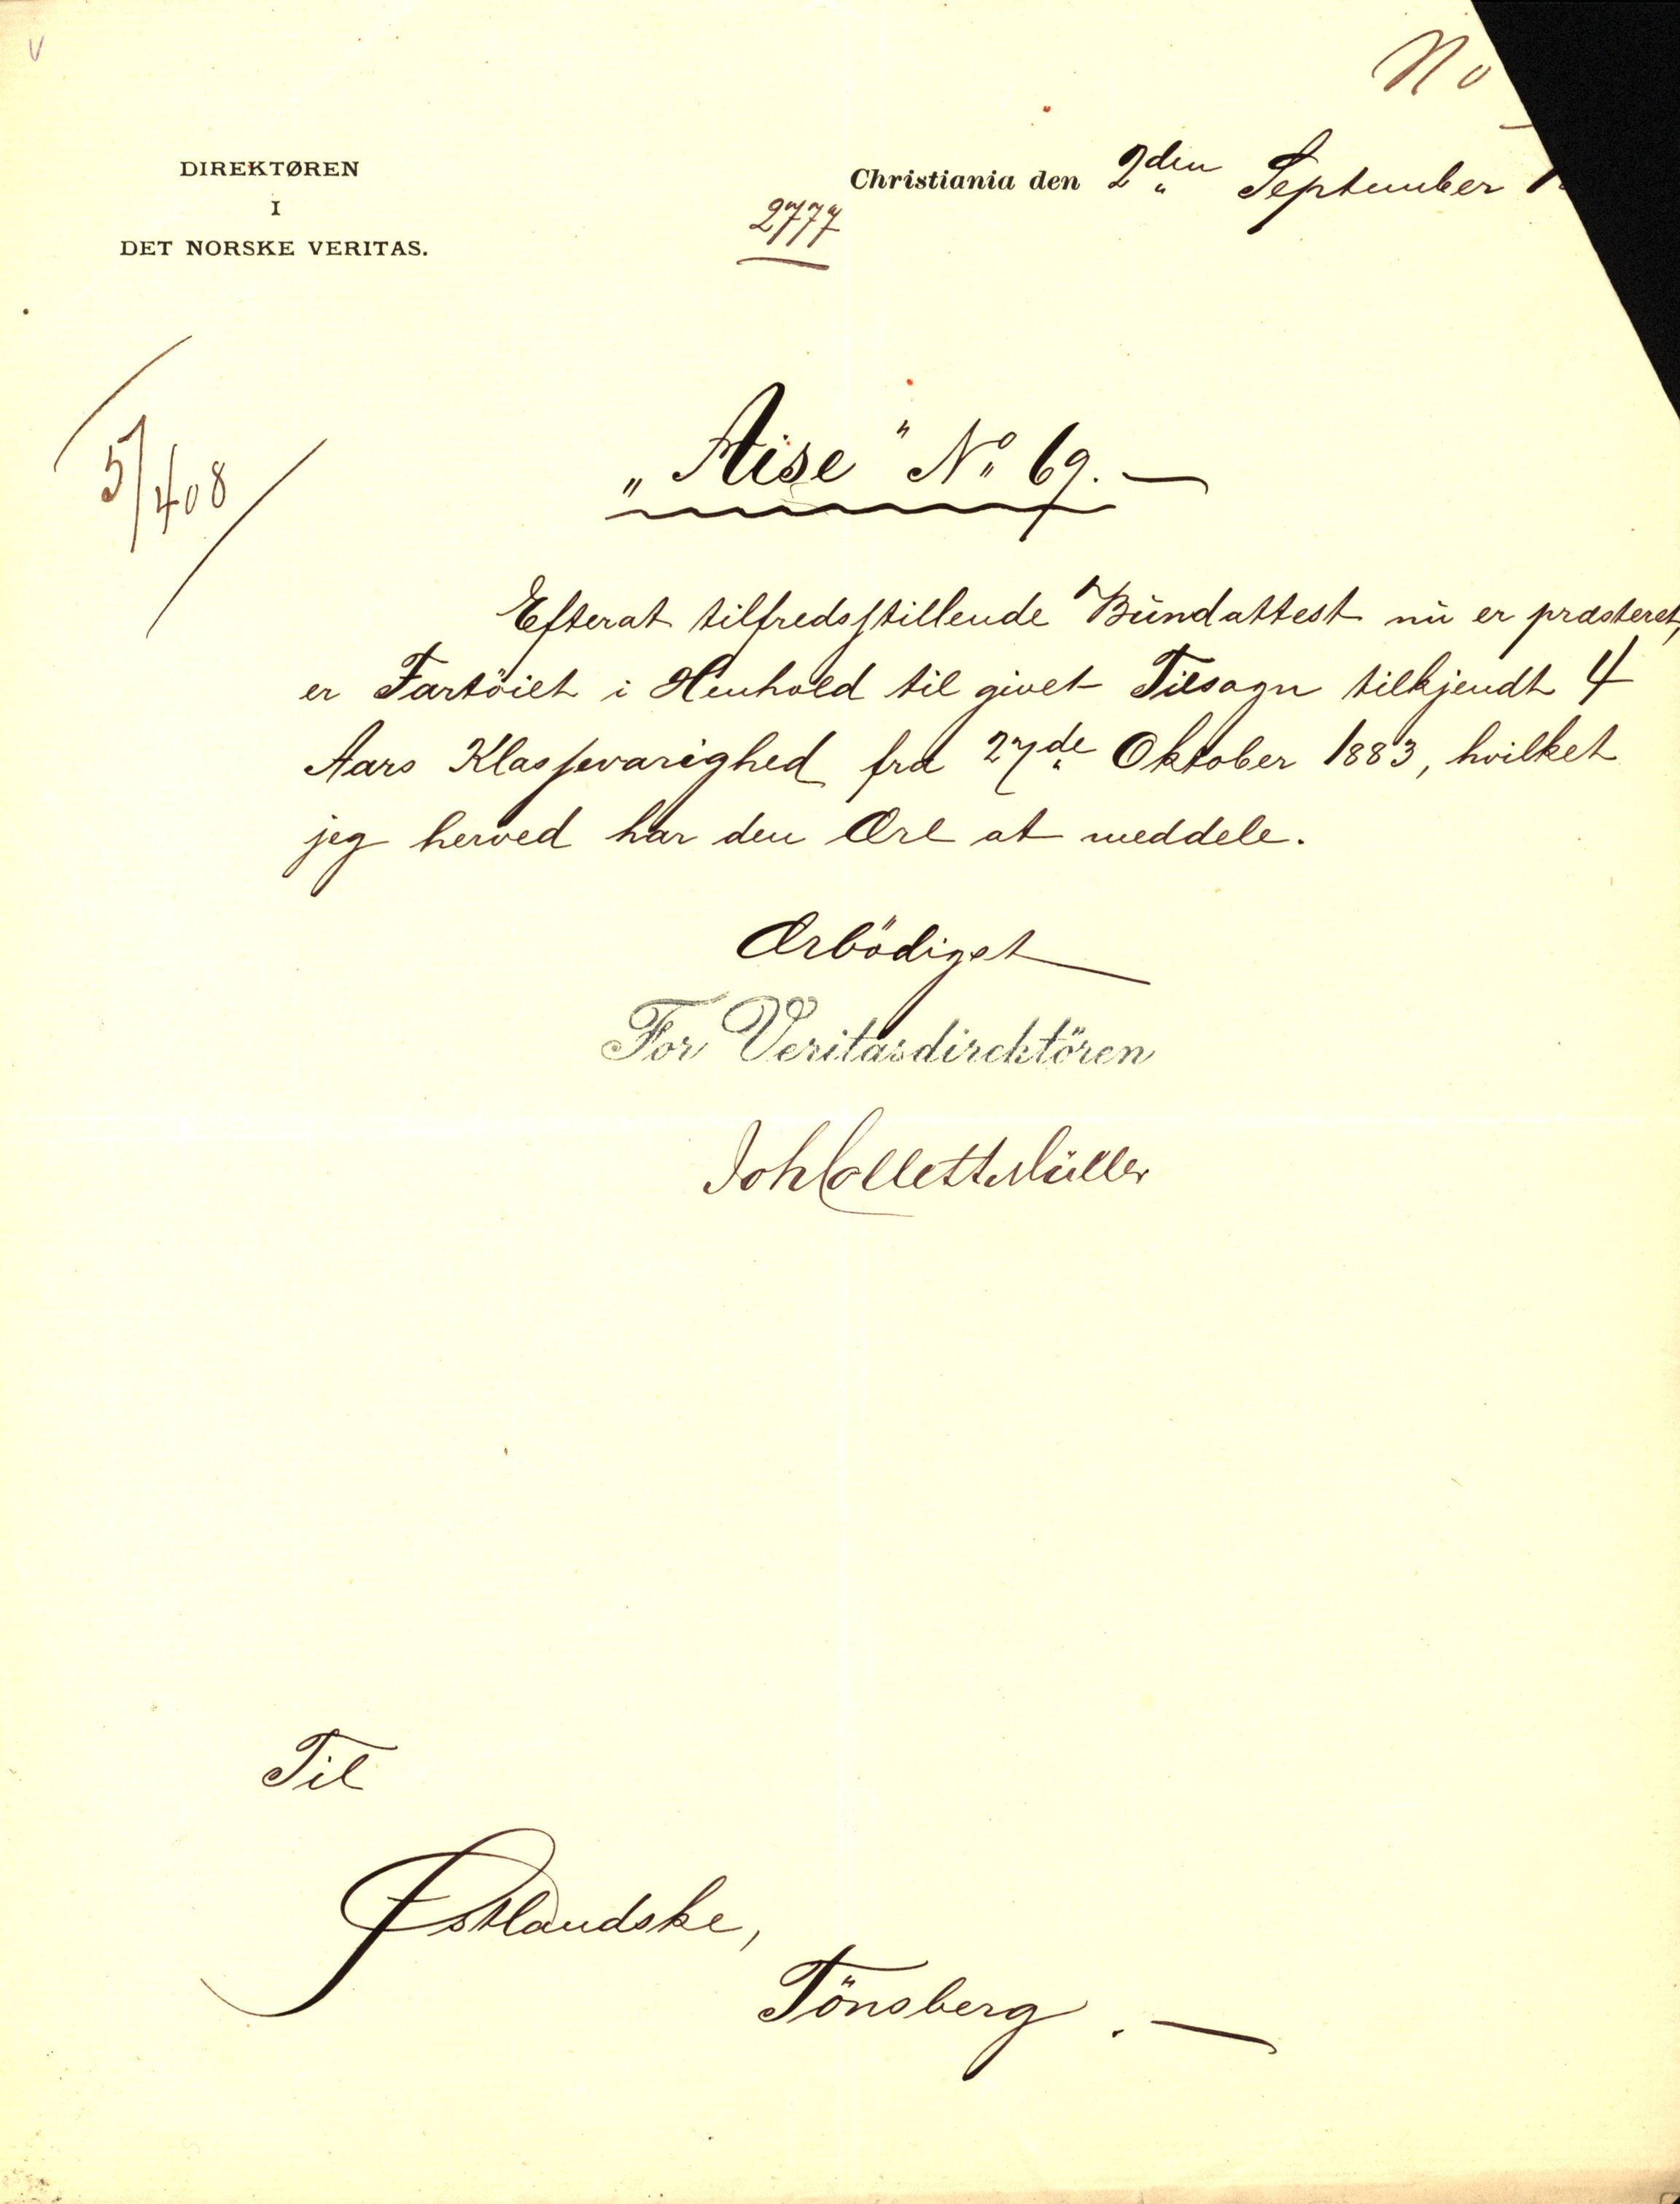 No
DIREKTØREN
I
DET NORSKE VERITAS.
Christiania den 2den September 1
2777
5/408
„Aise" No 69. —
Efterat tilfredsstillende Bundattest nu er præsteret,
er Fartöiet i Henhold til givet Tilsagn tilkjendt 4
Aars Klassevarighed fra 27de Oktober 1883, hvilket
jeg herved har den Ære at meddele.
Ærbödigst
For Veritasdirektören
Joh Collett Müller
Til
Østlandske,
Tönsberg. —